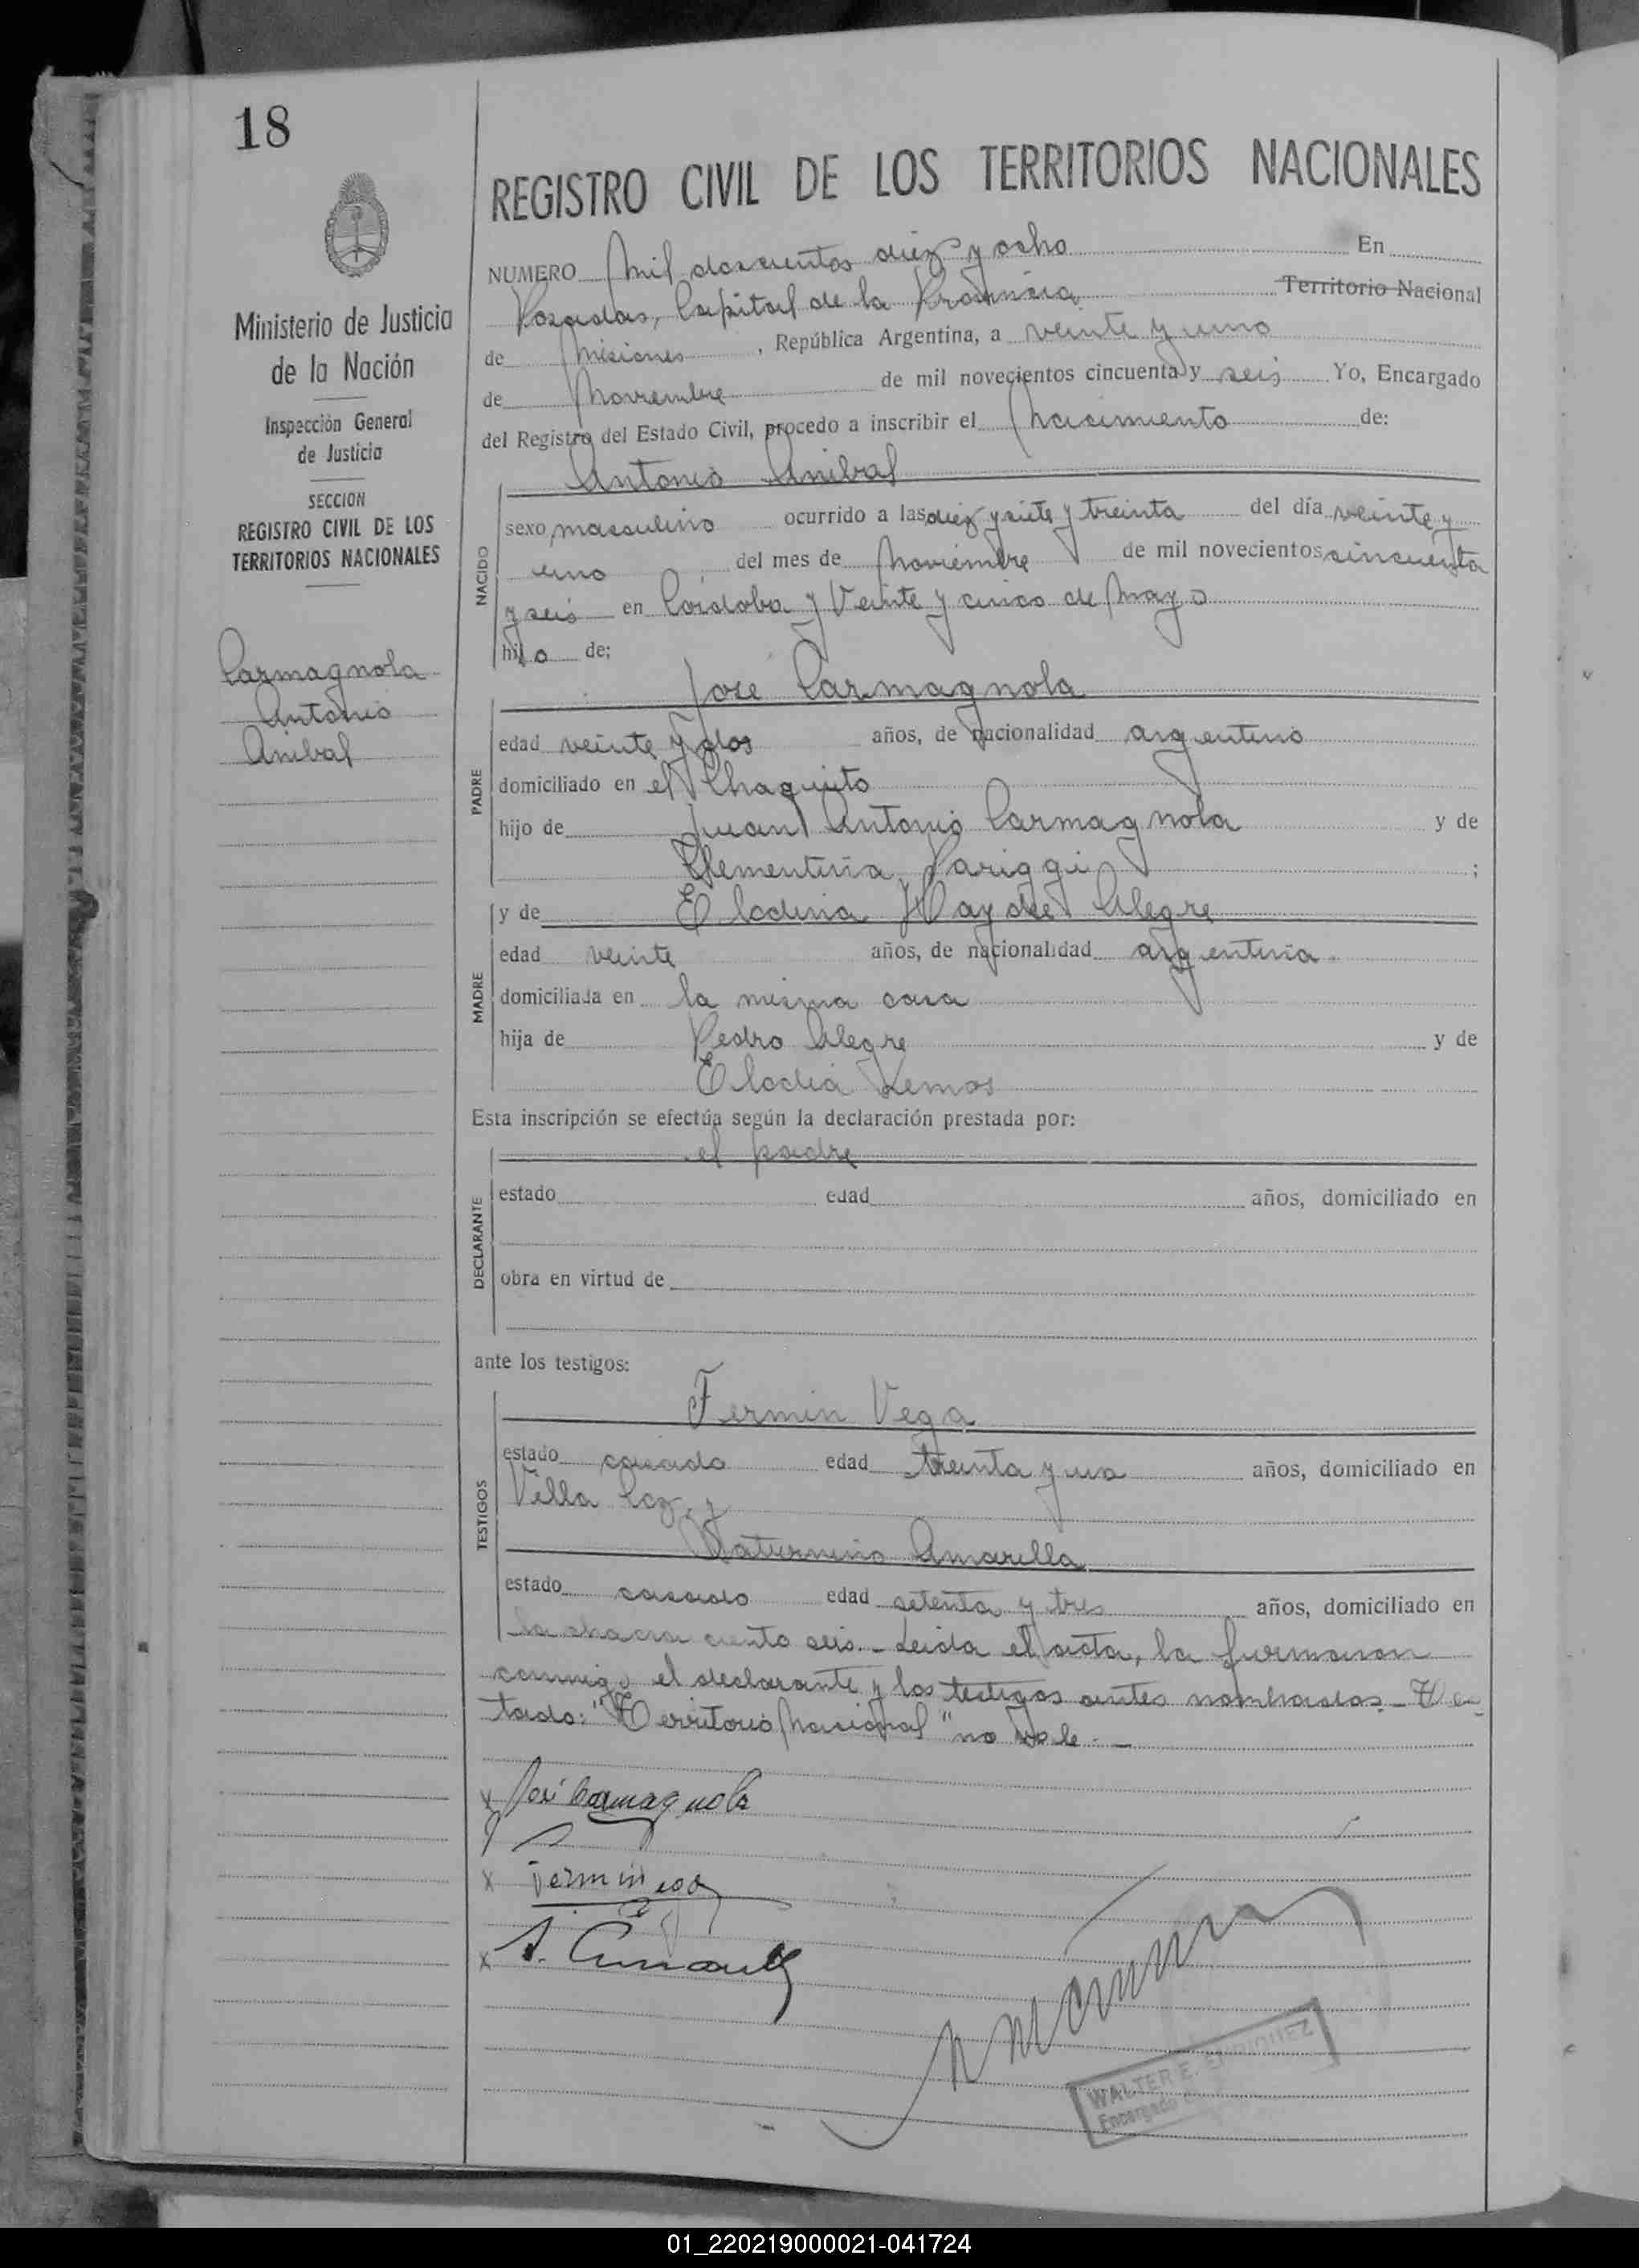 18
Ministerio de Justicia
de la Nación
Inspección General
de Justicia
SECCION
REGISTRO CIVIL DE LOS
TERRITORIOS NACIONALES
Carmagnola
Antonio
Anibal
REGISTRO CIVIL DE LOS TERRITORIOS NACIONALES
NUMERO Mil doscientos diez y ocho En
Posadas, Capital de la Provincia Territorio Nacional
de Misiones, República Argentina, a veinte y uno
de Noviembre de mil novecientos cincuenta y seis Yo, Encargado
del Registro del Estado Civil, procedo a inscribir el Nacimiento de:
Antonio Anibal
NACIDO
sexo masculino ocurrido a las diez y siete y treinta del día veinte y
uno del mes de Noviembre de mil novecientos cincuenta
y seis en Córdoba y Veinte y cinco de Mayo
hijo de:
José Carmagnola
PADRE
edad veinte y dos años, de nacionalidad argentino
domiciliado en el Chaquito
hijo de Juan Antonio Carmagnola y de
Clementina Pariggi;
y de Eladina Haydée Alegre
MADRE
edad veinte años, de nacionalidad argentina.
domiciliada en la misma casa
hija de Pedro Alegre y de
Eladia Lemos
Esta inscripción se efectúa según la declaración prestada por:
el padre
DECLARANTE
estado edad años, domiciliado en
obra en virtud de
ante los testigos:
Fermin Vega
TESTIGOS
estado casado edad treinta y uno años, domiciliado en
Villa Coz, y
Saturnino Amarilla
estado casado edad setenta y tres años, domiciliado en
la chacra ciento seis.- Leida el acta, la firmaron
conmigo el declarante y los testigos antes nombrados.- Te-
tado: "Territorio Nacional" no vale.-
x José Carmagnola
x Fermin Vega
x S. Amarilla
WALTER E. ENRIQUEZ
Encargado
01_220219000021-041724